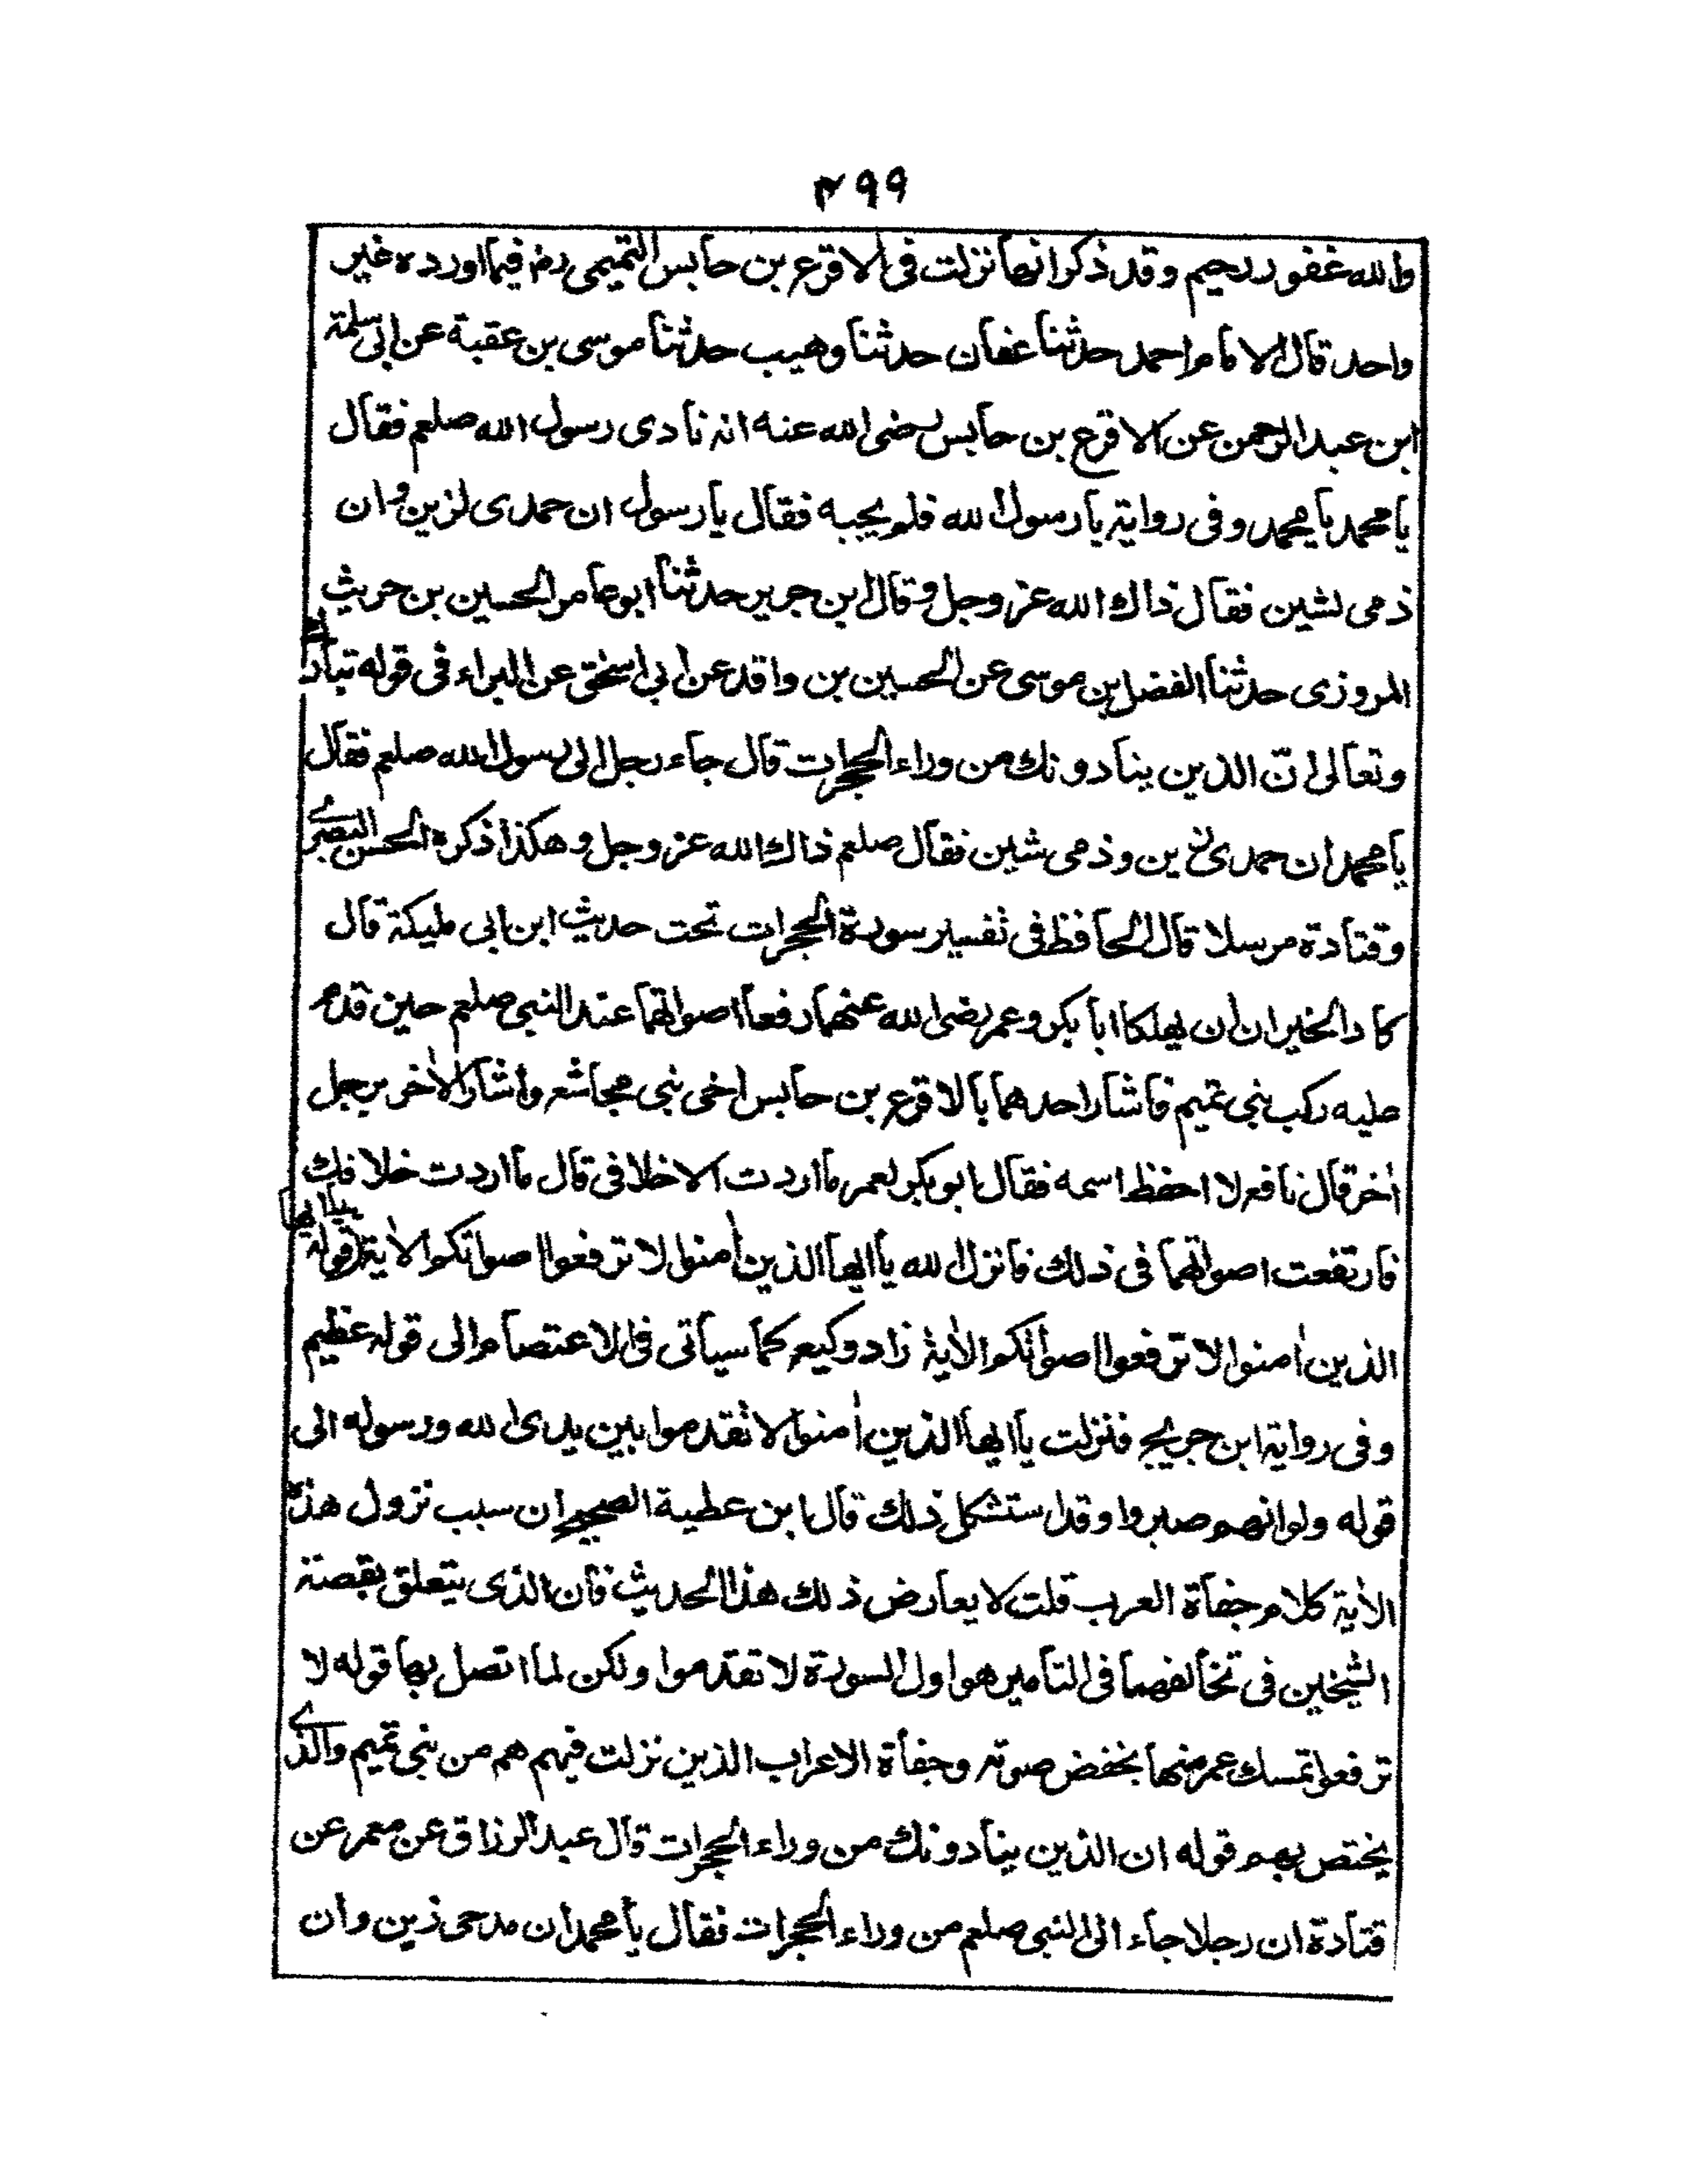 ۴۹۹
والله غفور رحيم وقد ذكر انها نزلت فى الاقرع بن حابس التميمى رض فيما اورده غير
واحد قال الامام احمد حدثنا عفان حدثنا وهيب حدثنا موسى بن عقبة عن ابى سلمة
ابن عبد الرحمن عن الاقرع بن حابس رضى الله عنه انه نادى رسول الله صلعم فقال
يا محمد يا محمد وفى رواية يا رسول الله فلم يجبه فقال يا رسول ان حمدى لزين وان
ذمى لشين فقال ذاك الله عز وجل وقال ابن جرير حدثنا ابو عامر الحسين بن حريث
المروزى حدثنا الفضل بن موسى عن الحسين بن واقد عن ابى اسحق عن البراء فى قوله تبارك
وتعالى انّ الذين ينادونك من وراء الحجرات قال جاء رجل الى رسول الله صلعم فقال
يا محمد ان حمدى زين وذمى شين فقال صلعم ذاك الله عز وجل وهكذا ذكره الحسن البصرى
وقتادة مرسلا قال الحافظ فى تفسير سورة الحجرات تحت حديث ابن ابى مليكة قال
كاد الخيران ان يهلكا ابا بكر وعمر رضى الله عنهما رفعا اصواتهما عند النبى صلعم حين قدم
عليه ركب بنى تميم فاشار احدهما بالاقرع بن حابس اخى بنى مجاشع واشار الاٰخر برجل
اٰخر قال نافع لا احفظ اسمه فقال ابو بكر لعمر ما اردت الا خلافى قال ما اردت خلافك
فارتفعت اصواتهما فى ذلك فانزل الله يا ايها الذين اٰمنوا لا ترفعوا اصواتكم الاٰية (قوله يا ايها
الذين اٰمنوا لا ترفعوا اصواتكم الاٰية زاد وكيع كما سياتى فى الاعتصام الى قوله عظيم
وفى رواية ابن جريج فنزلت يا ايها الذين اٰمنوا لا تقدموا بين يدى الله ورسوله الى
قوله ولو انهم صبروا وقد استشكل ذلك قال ابن عطية الصحيح ان سبب نزول هذه
الاٰية كلام جفاة العرب قلت لا يعارض ذلك هذا الحديث فان الذى يتعلق بقصة
الشيخين فى تخالفهما فى التامير هو اول السورة لا تقدموا ولكن لما اتصل بها قوله لا
ترفعوا تمسك عمر منها بخفض صوته وجفاة الاعراب الذين نزلت فيهم هم من بنى تميم والذى
يختص بهم قوله ان الذين ينادونك من وراء الحجرات قال عبد الرزاق عن معمر عن
قتادة ان رجلا جاء الى النبى صلعم من وراء الحجرات فقال يا محمد ان مدحى زين وان